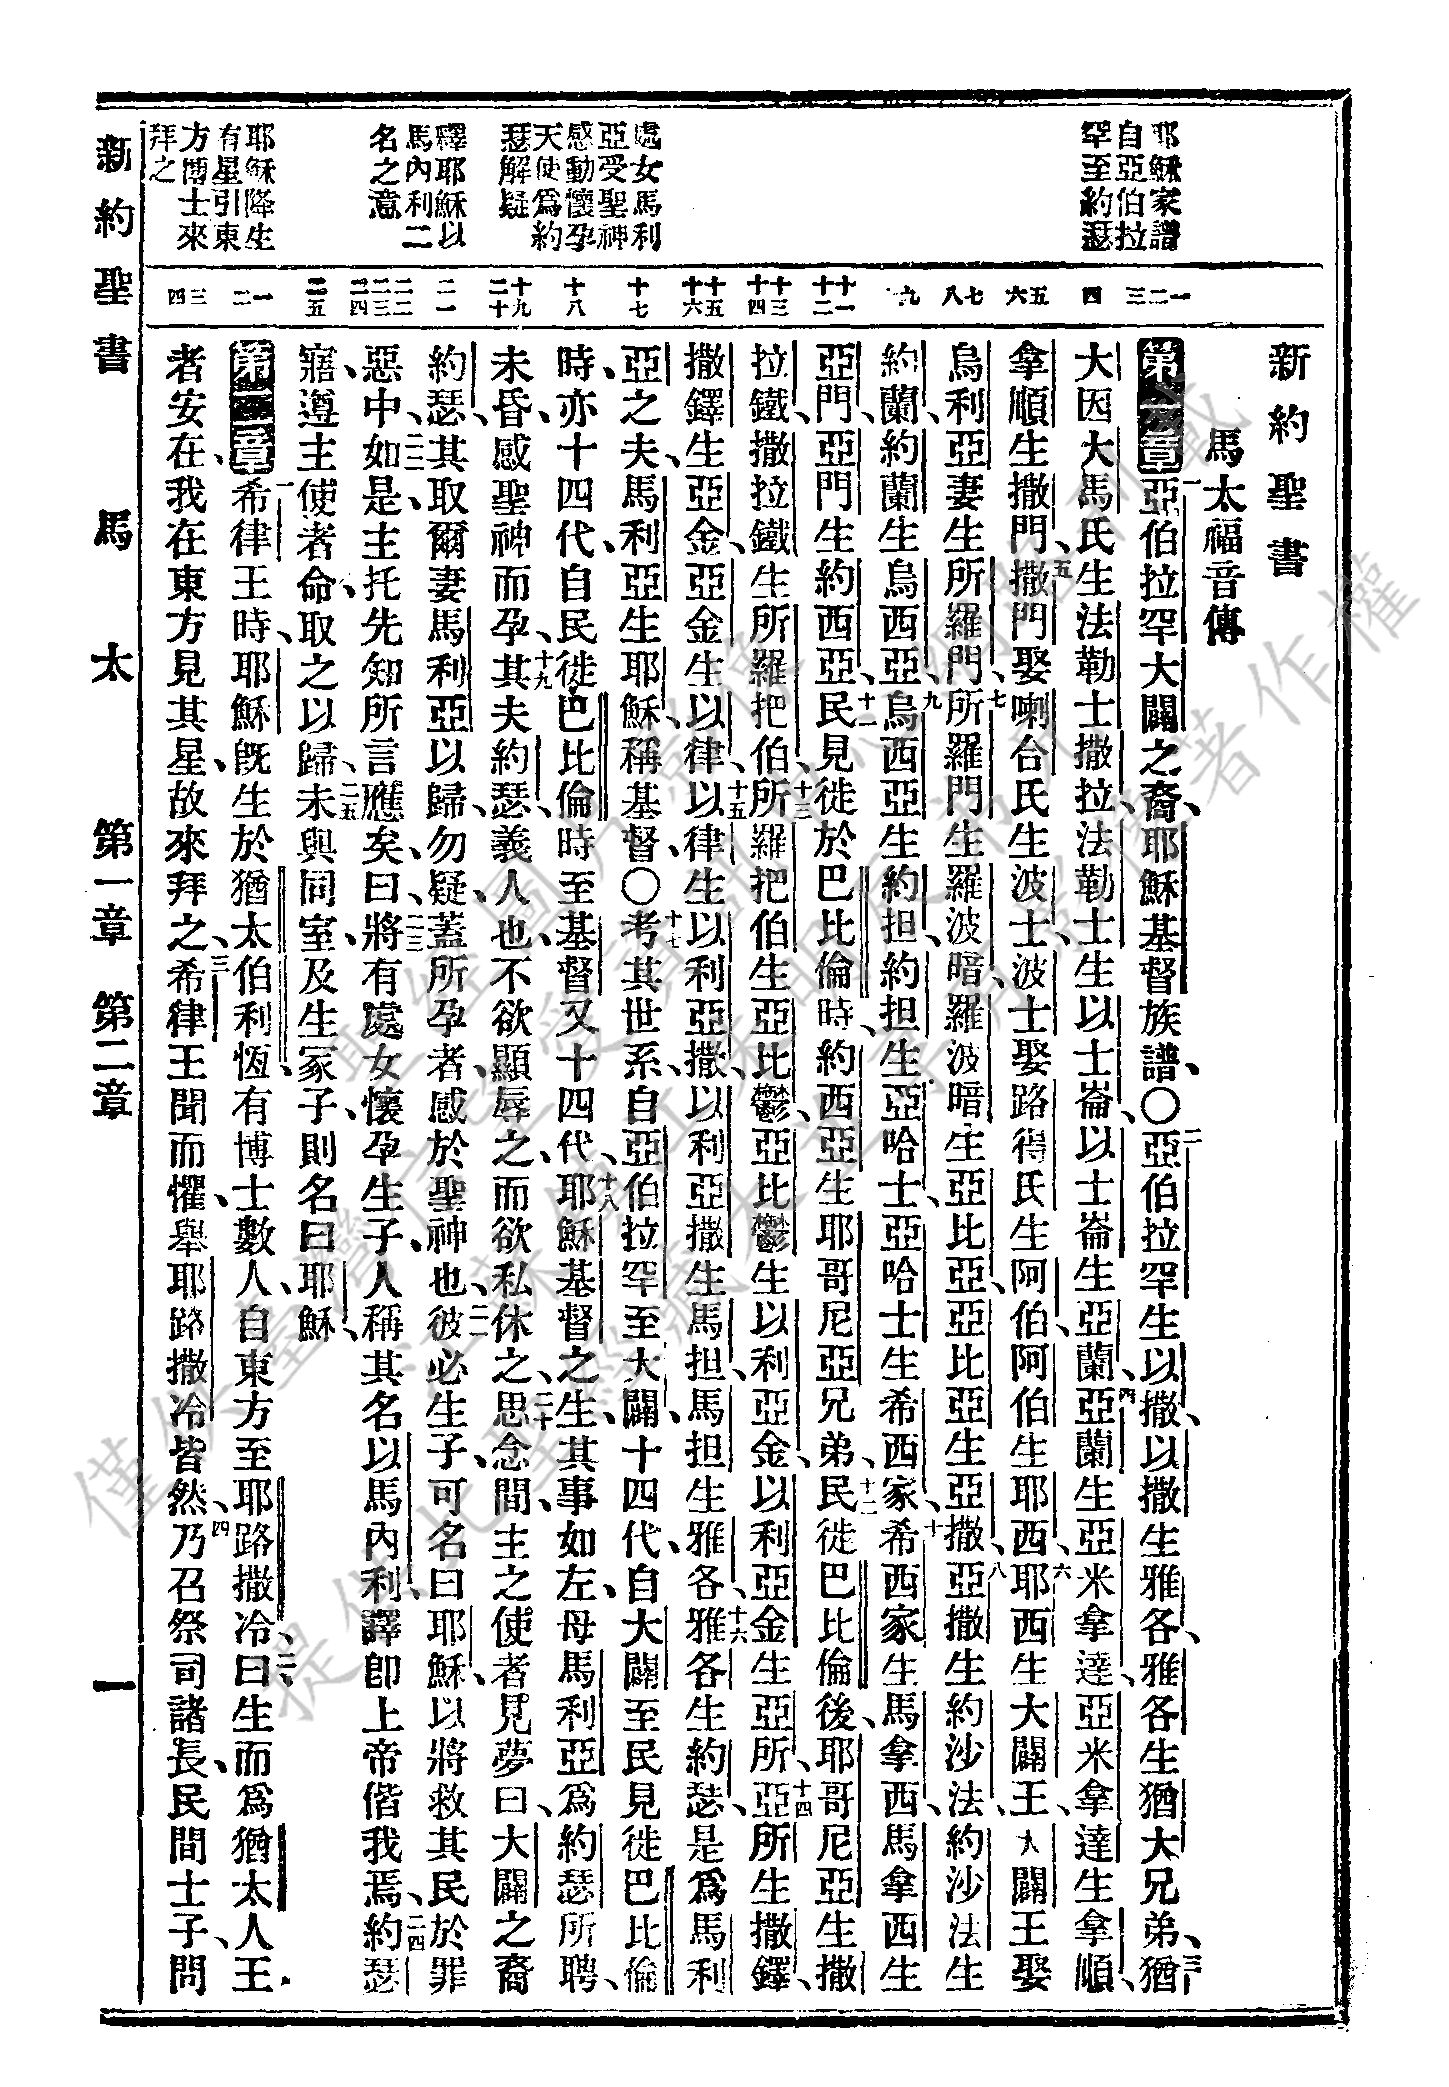 新約聖書
馬太福音傳
耶穌家譜
自亞伯拉
罕至約瑟
處女馬利
亞受聖神
感動懷孕
天使爲約
瑟解疑
釋耶穌以
馬內利二
名之意
耶穌降生
有星引東
方博士來
拜之
一二三
四
五六
七八
九
十一十二
十三十四
十五十六
十七
十八
十九二十
二一
二二二三二四
二五
一二
三四
第一章一亞伯拉罕大闢之裔、耶穌基督族譜、〇二亞伯拉罕生以撒、以撒生雅各、雅各生猶大兄弟、三猶
大因大馬氏生法勒士撒拉、法勒士生以士崙、以士崙生亞蘭、四亞蘭生亞米拿達、亞米拿達生拿順、
拿順生撒門、五撒門娶喇合氏生波士、波士娶路得氏生阿伯、阿伯生耶西、六耶西生大闢王、大闢王娶
烏利亞妻生所羅門、七所羅門生羅波暗、羅波暗生亞比亞、亞比亞生亞撒、八亞撒生約沙法、約沙法生
約蘭、約蘭生烏西亞、九烏西亞生約担、約担生亞哈士、亞哈士生希西家、十希西家生馬拿西、馬拿西生
亞門、亞門生約西亞、十一民見徙於巴比倫時、約西亞生耶哥尼亞兄弟、十二民徙巴比倫後、耶哥尼亞生撒
拉鐵、撒拉鐵生所羅把伯、十三所羅把伯生亞比鬱、亞比鬱生以利亞金、以利亞金生亞所、十四亞所生撒鐸、
撒鐸生亞金、亞金生以律、十五以律生以利亞撒、以利亞撒生馬担、馬担生雅各、十六雅各生約瑟、是爲馬利
亞之夫、馬利亞生耶穌、稱基督、〇十七考其世系、自亞伯拉罕至大闢、十四代、自大闢至民見徙巴比倫
時、亦十四代、自民徙巴比倫時至基督、又十四代、十八耶穌基督之生、其事如左、母馬利亞爲約瑟所聘、
未昏、感聖神而孕、十九其夫約瑟、義人也、不欲顯辱之、而欲私休之、二十思念間、主之使者見夢曰、大闢之裔
約瑟、其取爾妻馬利亞以歸、勿疑、蓋所孕者、感於聖神也、二一彼必生子、可名曰耶穌、以將救其民於罪
惡中、二二如是、主托先知所言應矣、曰、二三將有處女懷孕生子、人稱其名以馬內利、譯卽上帝偕我焉、二四約瑟
寤、遵主使者命、取之以歸、二五未與同室、及生冢子、則名曰耶穌、
第二章一希律王時、耶穌旣生於猶太伯利恆、有博士數人、自東方至耶路撒冷、二曰、生而爲猶太人王
者安在、我在東方見其星、故來拜之、三希律王聞而懼、舉耶路撒冷皆然、四乃召祭司諸長、民間士子、問
新約聖書　馬太　第一章　第二章　一